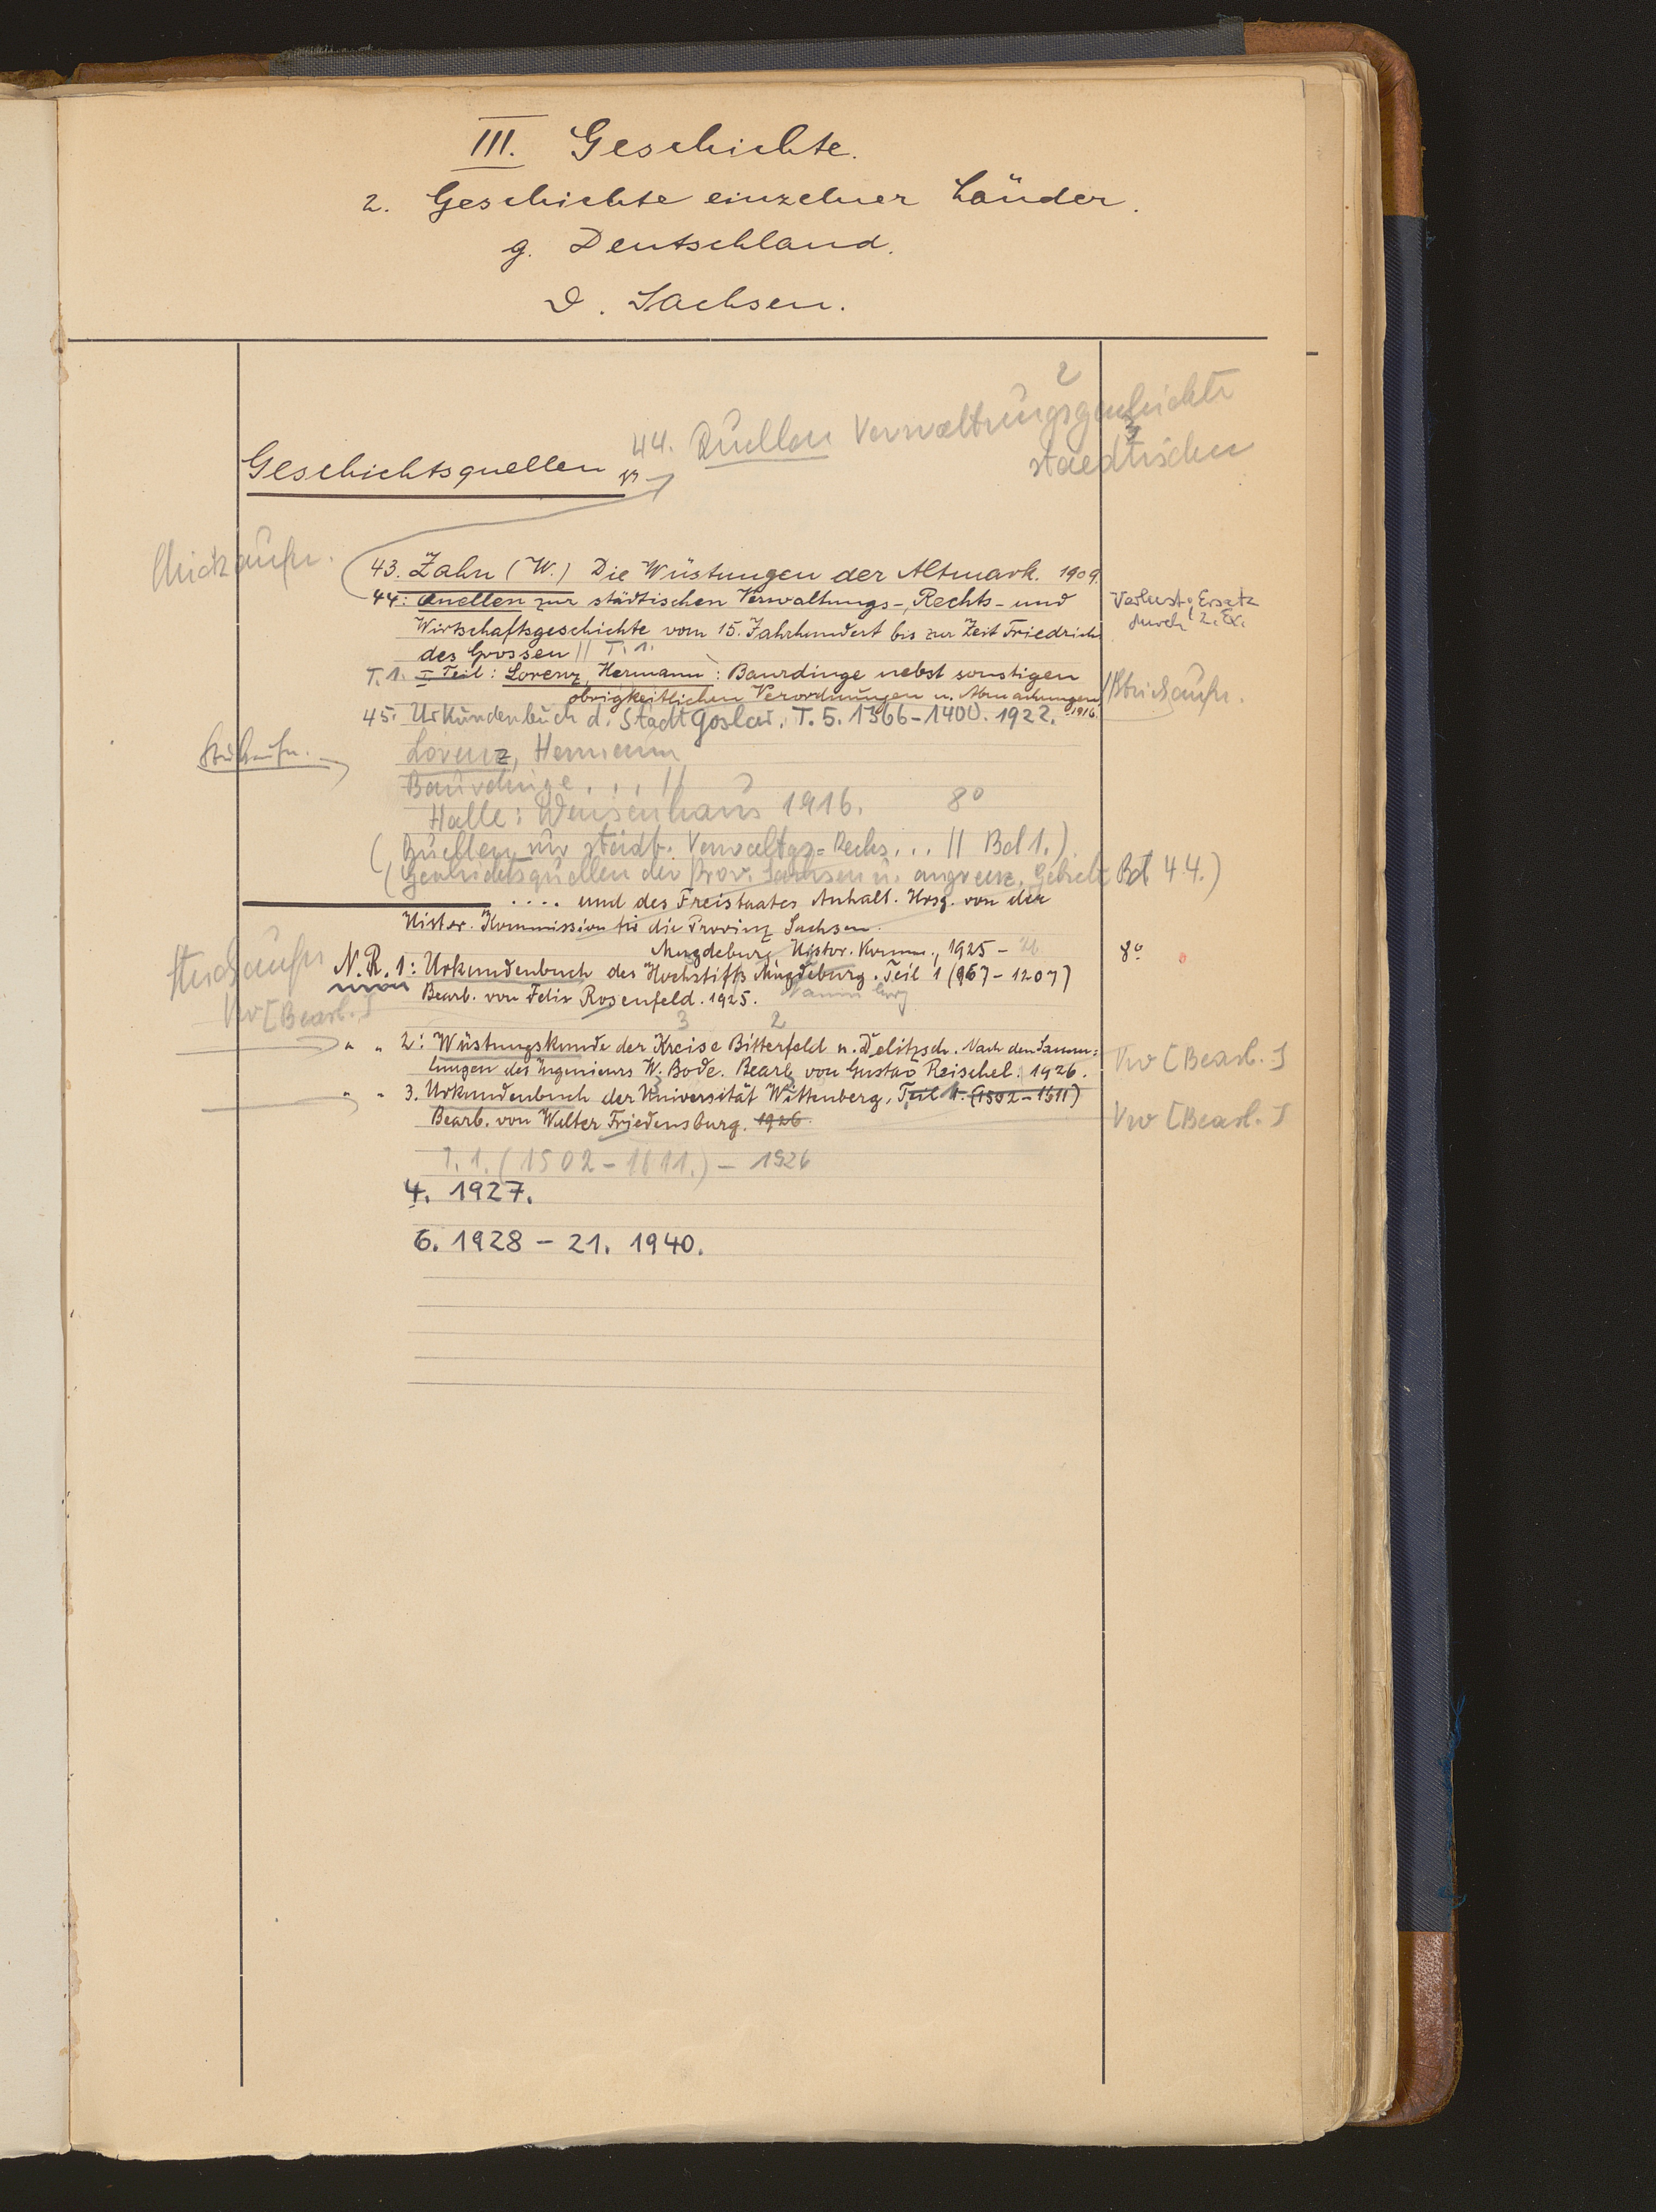 III. Geschichte.
2. Geschichte einzelner Länder.
g. Deutschland.
D. Sachsen.
2
44. Quellen Verwaltungsgeschichte
3
staedtischen
Geschichtsquellen
Stückaufn.
43. Zahn (W.) Die Wüstungen der Altmark. 1909.
44: Quellen zur städtischen Verwaltungs-, Rechts- und
Verlust; Ersatz
Wirtschaftsgeschichte vom 15. Jahrhundert bis zur Zeit Friedrich
durch 2. Ex.
des Grossen // T. 1.
T. 1. I Teil: Lorenz, Hermann: Baurdinge nebst sonstigen
obrigkeitlichen Verordnungen u. Abmachungen 1916.
// Stückaufn.
45. Urkundenbuch d. Stadt Goslar. T. 5. 1366-1400. 1922.
Stückaufn.
Lorenz, Hermann
Baurdinge . . . //
Halle: Waisenhaus 1916. 8°
(Quellen zur städt. Verwaltgs-Rechs... // Bd 1.)
(Geschichtsquellen der Prov. Sachsen u. angrenz. Gebiete Bd 44.)
.... und des Freistaates Anhalt. Hrsg. von der
Histor. Kommission für die Provinz Sachsen.
Magdeburg Histor. Komm., 1925 - 26
8°
Stückaufn
N. R. 1: Urkundenbuch des Hochstifts Magdeburg. Teil 1 (967-1207)
Naumburg
Bearb. von Felix Rosenfeld. 1925.
Vw [Bearb.]
3 2
" " 2: Wüstungskunde der Kreise Bitterfeld u. Delitzsch. Nach den Samm=
lungen des Ingenieurs W. Bode. Bearb. von Gustav Reischel. 1926.
Vw [Bearb.]
" " 3. Urkundenbuch der Universität Wittenberg. Teil 1. (1502-1611)
Bearb. von Walter Friedensburg. 1926.
Vw [Bearb.]
T. 1. (1502-1611.) - 1926
4. 1927.
6. 1928 - 21. 1940.